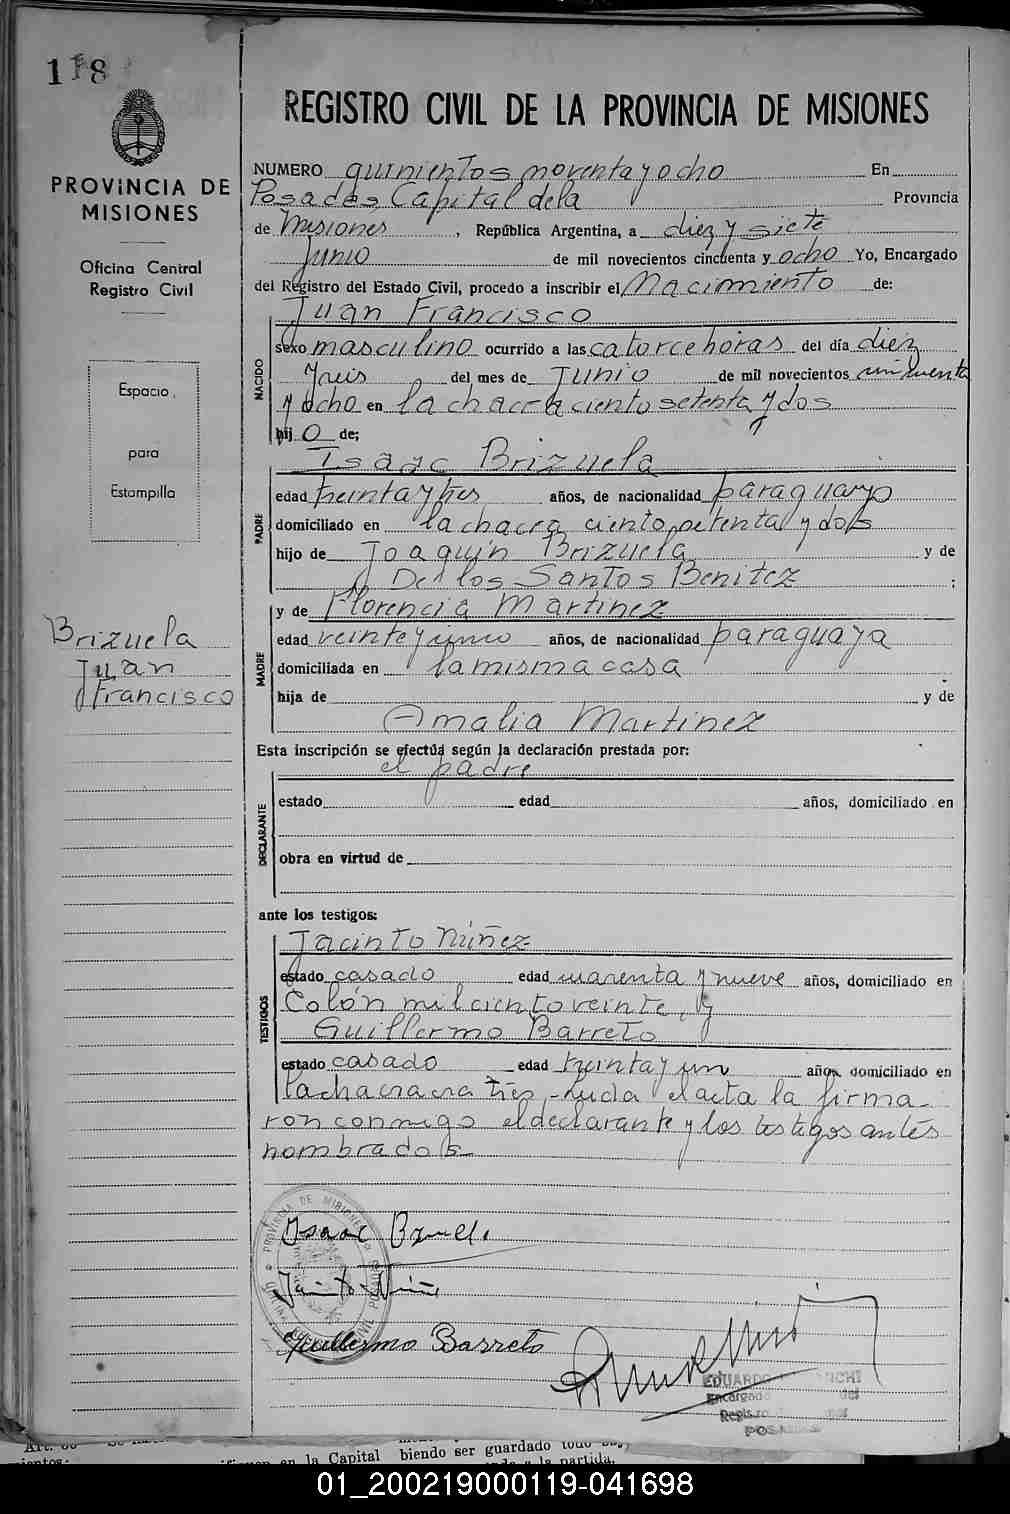 118
PROVINCIA DE
MISIONES
Oficina Central
Registro Civil
Espacio
para
Estampilla
Brizuela
Juan
Francisco
REGISTRO CIVIL DE LA PROVINCIA DE MISIONES
NUMERO quinientos noventa y ocho En
Posadas Capital de la Provincia
de Misiones, República Argentina, a diez y siete
Junio de mil novecientos cincuenta y ocho Yo, Encargado
del Registro del Estado Civil, procedo a inscribir el Nacimiento de:
Juan Francisco
NACIDO
sexo masculino ocurrido a las catorce horas del día diez
y seis del mes de Junio de mil novecientos cincuenta
y ocho en la chacra ciento setenta y dos
hijo de;
Isaac Brizuela
PADRE
edad treinta y tres años, de nacionalidad paraguayo
domiciliado en la chacra ciento setenta y dos
hijo de Joaquín Brizuela y de
De los Santos Benitez ;
y de Florencia Martinez
MADRE
edad veinte y cinco años, de nacionalidad paraguaya
domiciliada en la misma casa
hija de y de
Amalia Martinez
Esta inscripción se efectúa según la declaración prestada por:
el padre
DECLARANTE
estado edad años, domiciliado en
obra en virtud de
ante los testigos:
Jacinto Núñez
TESTIGOS
estado casado edad cuarenta y nueve años, domiciliado en
Colón mil ciento veinte, y
Guillermo Barreto
estado casado edad treinta y un años, domiciliado en
la chacra tres leida el acta la firma
ron conmigo el declarante y los testigos antes
nombrados
PROVINCIA DE MISIONES
Isaac
Guillermo Barreto
EDUARDO
Encargado del
Registro
POSADAS
la Capital
biendo ser guardado
la partida.
01_200219000119-041698